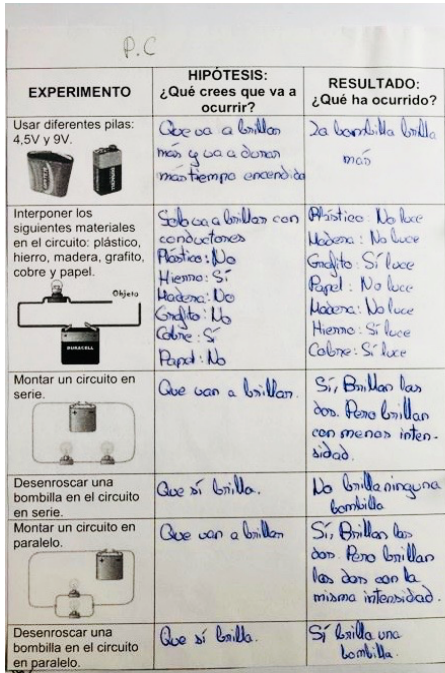 P.C
EXPERIMENTO
HIPÓTESIS:
¿Qué crees que va a
ocurrir?
RESULTADO:
¿Qué ha ocurrido?
Usar diferentes pilas:
4,5V y 9V.
Que va a brillar
más y va a durar
más tiempo encendida
La bombilla brilla
más
Interponer los
siguientes materiales
en el circuito: plástico,
hierro, madera, grafito,
cobre y papel.
Objeto
DURACELL
Solo va a brillar con
conductores
Plástico: No
Hierro: Sí
Madera: No
Grafito: No
Cobre: Sí
Papel: No
Plástico: No luce
Madera: No luce
Grafito: Sí luce
Papel: No luce
Madera: No luce
Hierro: Sí luce
Cobre: Sí luce
Montar un circuito en
serie.
Que van a brillar.
Sí, Brillan las
dos. Pero brillan
con menos inten-
sidad.
Desenroscar una
bombilla en el circuito
en serie.
Que sí brilla.
No brilla ninguna
bombilla
Montar un circuito en
paralelo.
Que van a brillar
Sí, Brillan las
dos. Pero brillan
las dos con la
misma intensidad.
Desenroscar una
bombilla en el circuito
en paralelo.
Que sí brilla.
Sí brilla una
bombilla.